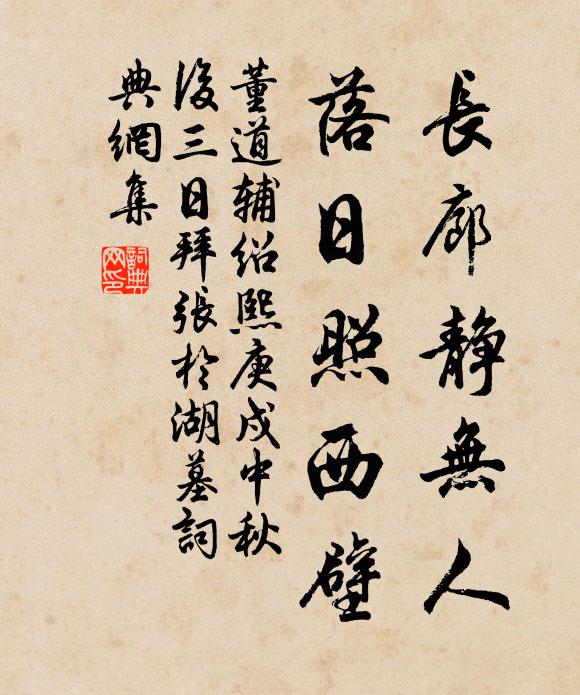 長廊靜無人
落日照西壁
董道輔紹熙庚戌中秋
後三日拜張於湖墓詞
典網集
詞典網印